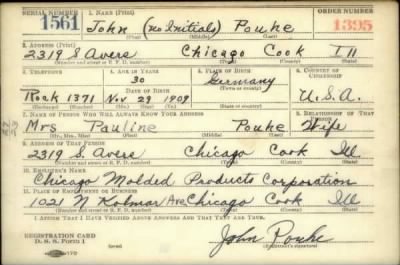 SERIAL NUMBER 1. NAME (Print) ORDER NUMBER
1561 John (no Initials) Pouke 1395
(First) (Middle) (Last)
2. ADDRESS (Print)
2319 S Avers Chicago Cook Ill
(Number and street or R. F. D. number) (Town) (County) (State)
3. TELEPHONE 4. AGE IN YEARS 5. PLACE OF BIRTH 6. COUNTRY OF CITIZENSHIP
30 Germany
DATE OF BIRTH (Town or county)
Rock 1371 Nov 29 1909 U.S.A.
(Exchange) (Number) (Mo.) (Day) (Yr.) (State or country)
7. NAME OF PERSON WHO WILL ALWAYS KNOW YOUR ADDRESS 8. RELATIONSHIP OF THAT PERSON
Mrs Pauline Pouke Wife
(Mr., Mrs., Miss) (First) (Middle) (Last)
9. ADDRESS OF THAT PERSON
2319 S. Avers Chicago Cook Ill
(Number and street or R. F. D. number) (Town) (County) (State)
10. EMPLOYER'S NAME
Chicago Molded Products Corporation
11. PLACE OF EMPLOYMENT OR BUSINESS
1021 N Kolmar Ave Chicago Cook Ill
(Number and street or R. F. D. number) (Town) (County) (State)
I AFFIRM THAT I HAVE VERIFIED ABOVE ANSWERS AND THAT THEY ARE TRUE.
REGISTRATION CARD
D. S. S. Form 1 (over)
John Pouke
(Registrant's signature)